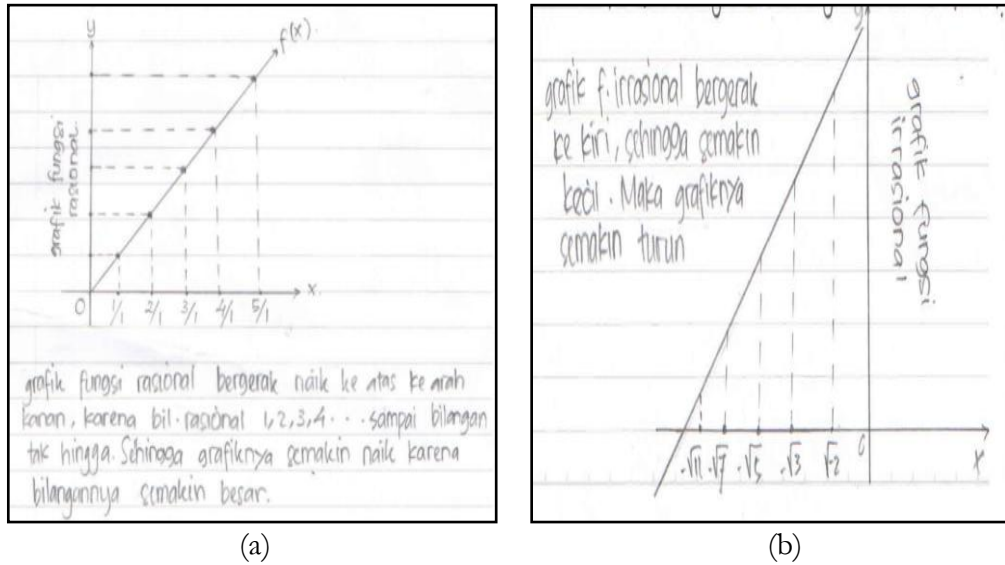 y
f(x).
grafik fungsi
rasional.
0
1/1 2/1 3/1 4/1 5/1
x
grafik fungsi rasional bergerak naik ke atas ke arah
kanan, karena bil. rasional 1,2,3,4 . . . sampai bilangan
tak hingga. Sehingga grafiknya semakin naik karena
bilangannya semakin besar.
(a)
y
grafik f. irrasional bergerak
ke kiri, sehingga semakin
kecil. Maka grafiknya
semakin turun
grafik fungsi
irrasional
-√11 -√7 -√5 -√3 √-2
0
x
(b)